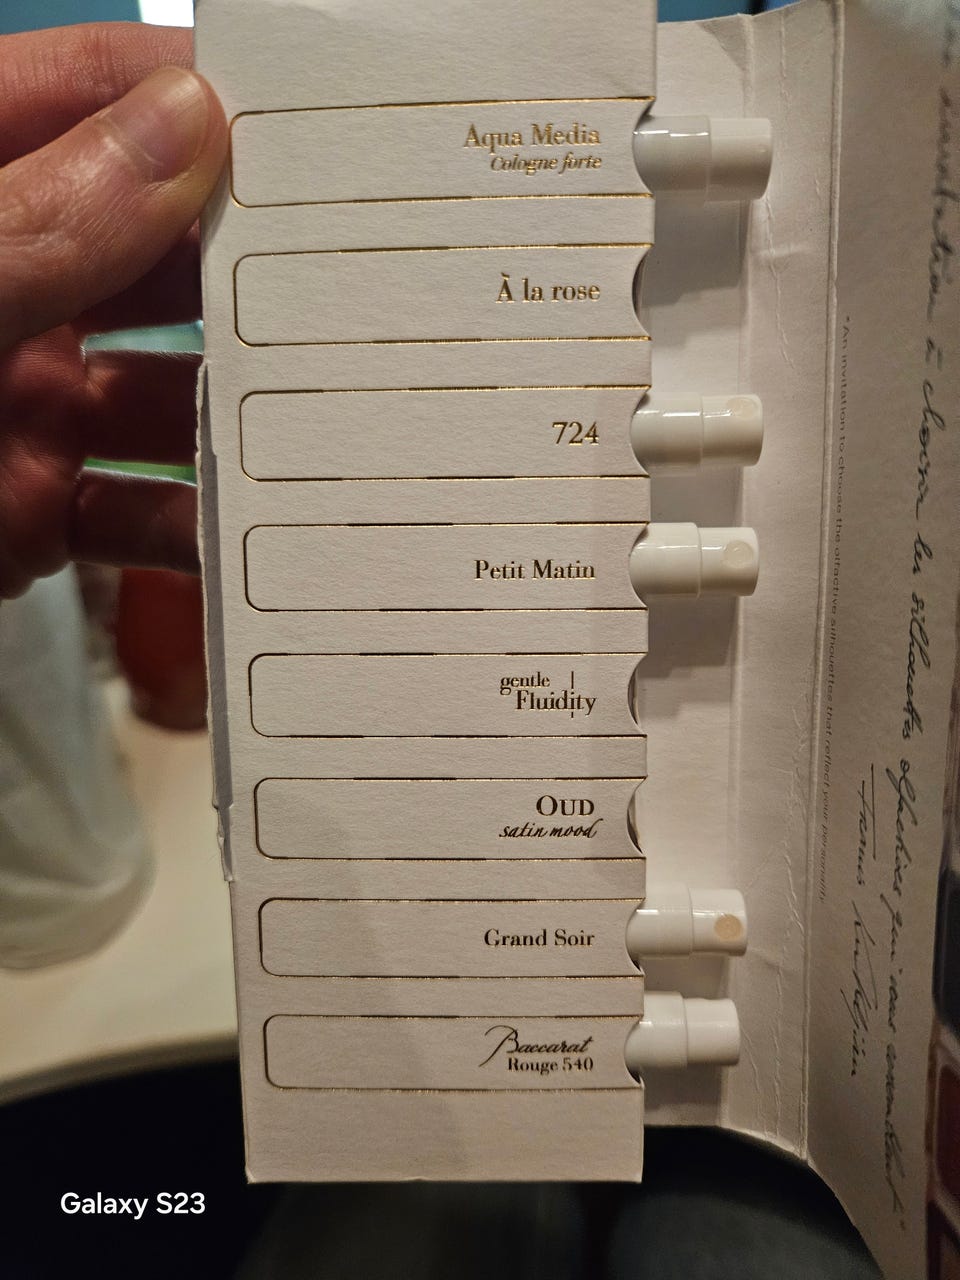 Aqua Media
Cologne forte
À la rose
724
Petit Matin
gentle
Fluidity
OUD
satin mood
Grand Soir
Baccarat
Rouge 540
"An invitation to choose the olfactive silhouettes that reflect your personality.
invitation à choisir les silhouettes olfactives qui vous
Francis Kurkdjian
Galaxy S23